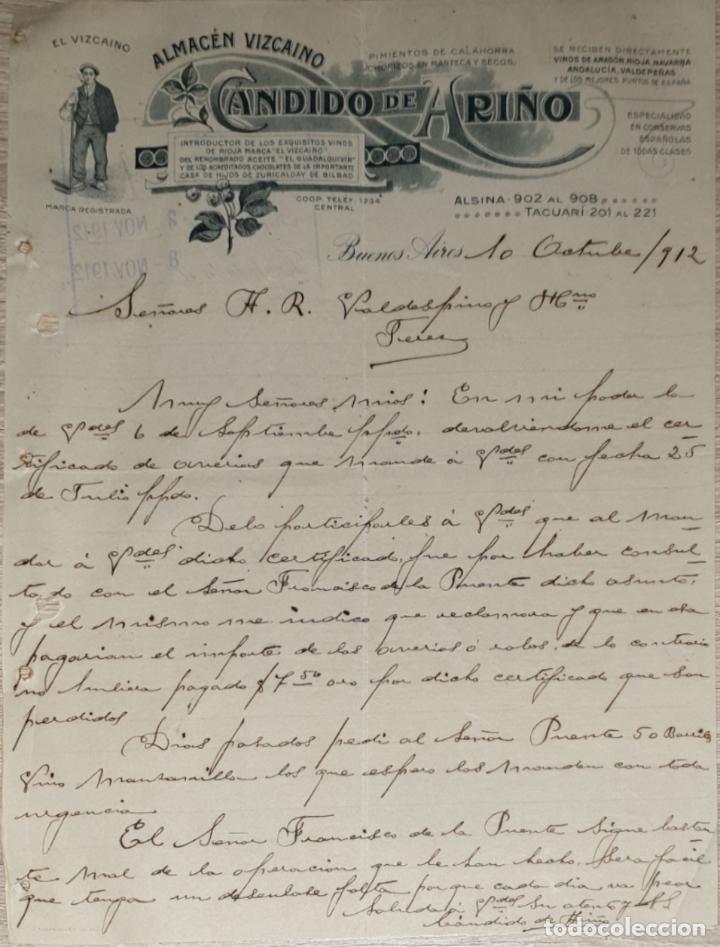 EL VIZCAINO
MARCA REGISTRADA
ALMACÉN VIZCAINO
PIMIENTOS DE CALAHORRA
CHORIZOS EN MANTECA Y SECOS
CÁNDIDO DE ARIÑO
SE RECIBEN DIRECTAMENTE
VINOS DE ARAGÓN, RIOJA, NAVARRA
ANDALUCÍA, VALDEPEÑAS
Y DE LOS MEJORES PUNTOS DE ESPAÑA
ESPECIALIDAD
EN CONSERVAS
ESPAÑOLAS
DE TODAS CLASES
INTRODUCTOR DE LOS EXQUISITOS VINOS
DE RIOJA MARCA "EL VIZCAINO"
DEL RENOMBRADO ACEITE "EL GUADALQUIVIR"
Y DE LOS ACREDITADOS CHOCOLATES DE LA IMPORTANTE
CASA DE HIJOS DE ZURICALDAY DE BILBAO
COOP. TELÉF. 1234
CENTRAL
ALSINA 902 AL 908
TACUARÍ 201 AL 221
2 NOV. 1912
8 NOV. 1912
Buenos Aires 10 Octubre/912
Señores A. R. Valdespino y Hno
Jerez
Muy Señores mios: En mi poder la
de Vdes 6 de Septiembre ppdo. devolviendome el cer
tificado de averias que mande á Vdes con fecha 25
de Julio ppdo.
Debo participarles á Vdes que al man
dar á Vdes dicho certificado, fue por haber consul
tado con el Señor Francisco de la Puente dicho asunto,
y el mismo me indico que reclamara y que en esa
pagarian el importe de las averias ó robos, de lo contrario
no hubiera pagado $ 7.50 oro por dicho certificado que son
perdidos
Dias pasados pedi al Señor Puente 50 Barriles
Vino Manzanilla los que espero los manden con toda
urgencia
El Señor Francisco de la Puente sigue bastan
te mal de la operacion que le han hecho, sera facil
que tenga un desenlace fatal por que cada dia va peor
Saluda á Vdes Su aten
Cándido de Ariño
todocoleccion
todocoleccion.net